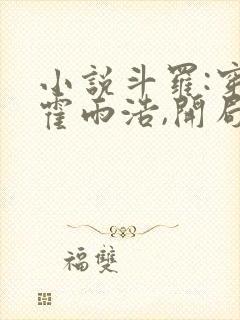 小說斗羅:穿
霍雨浩,開局
福雙